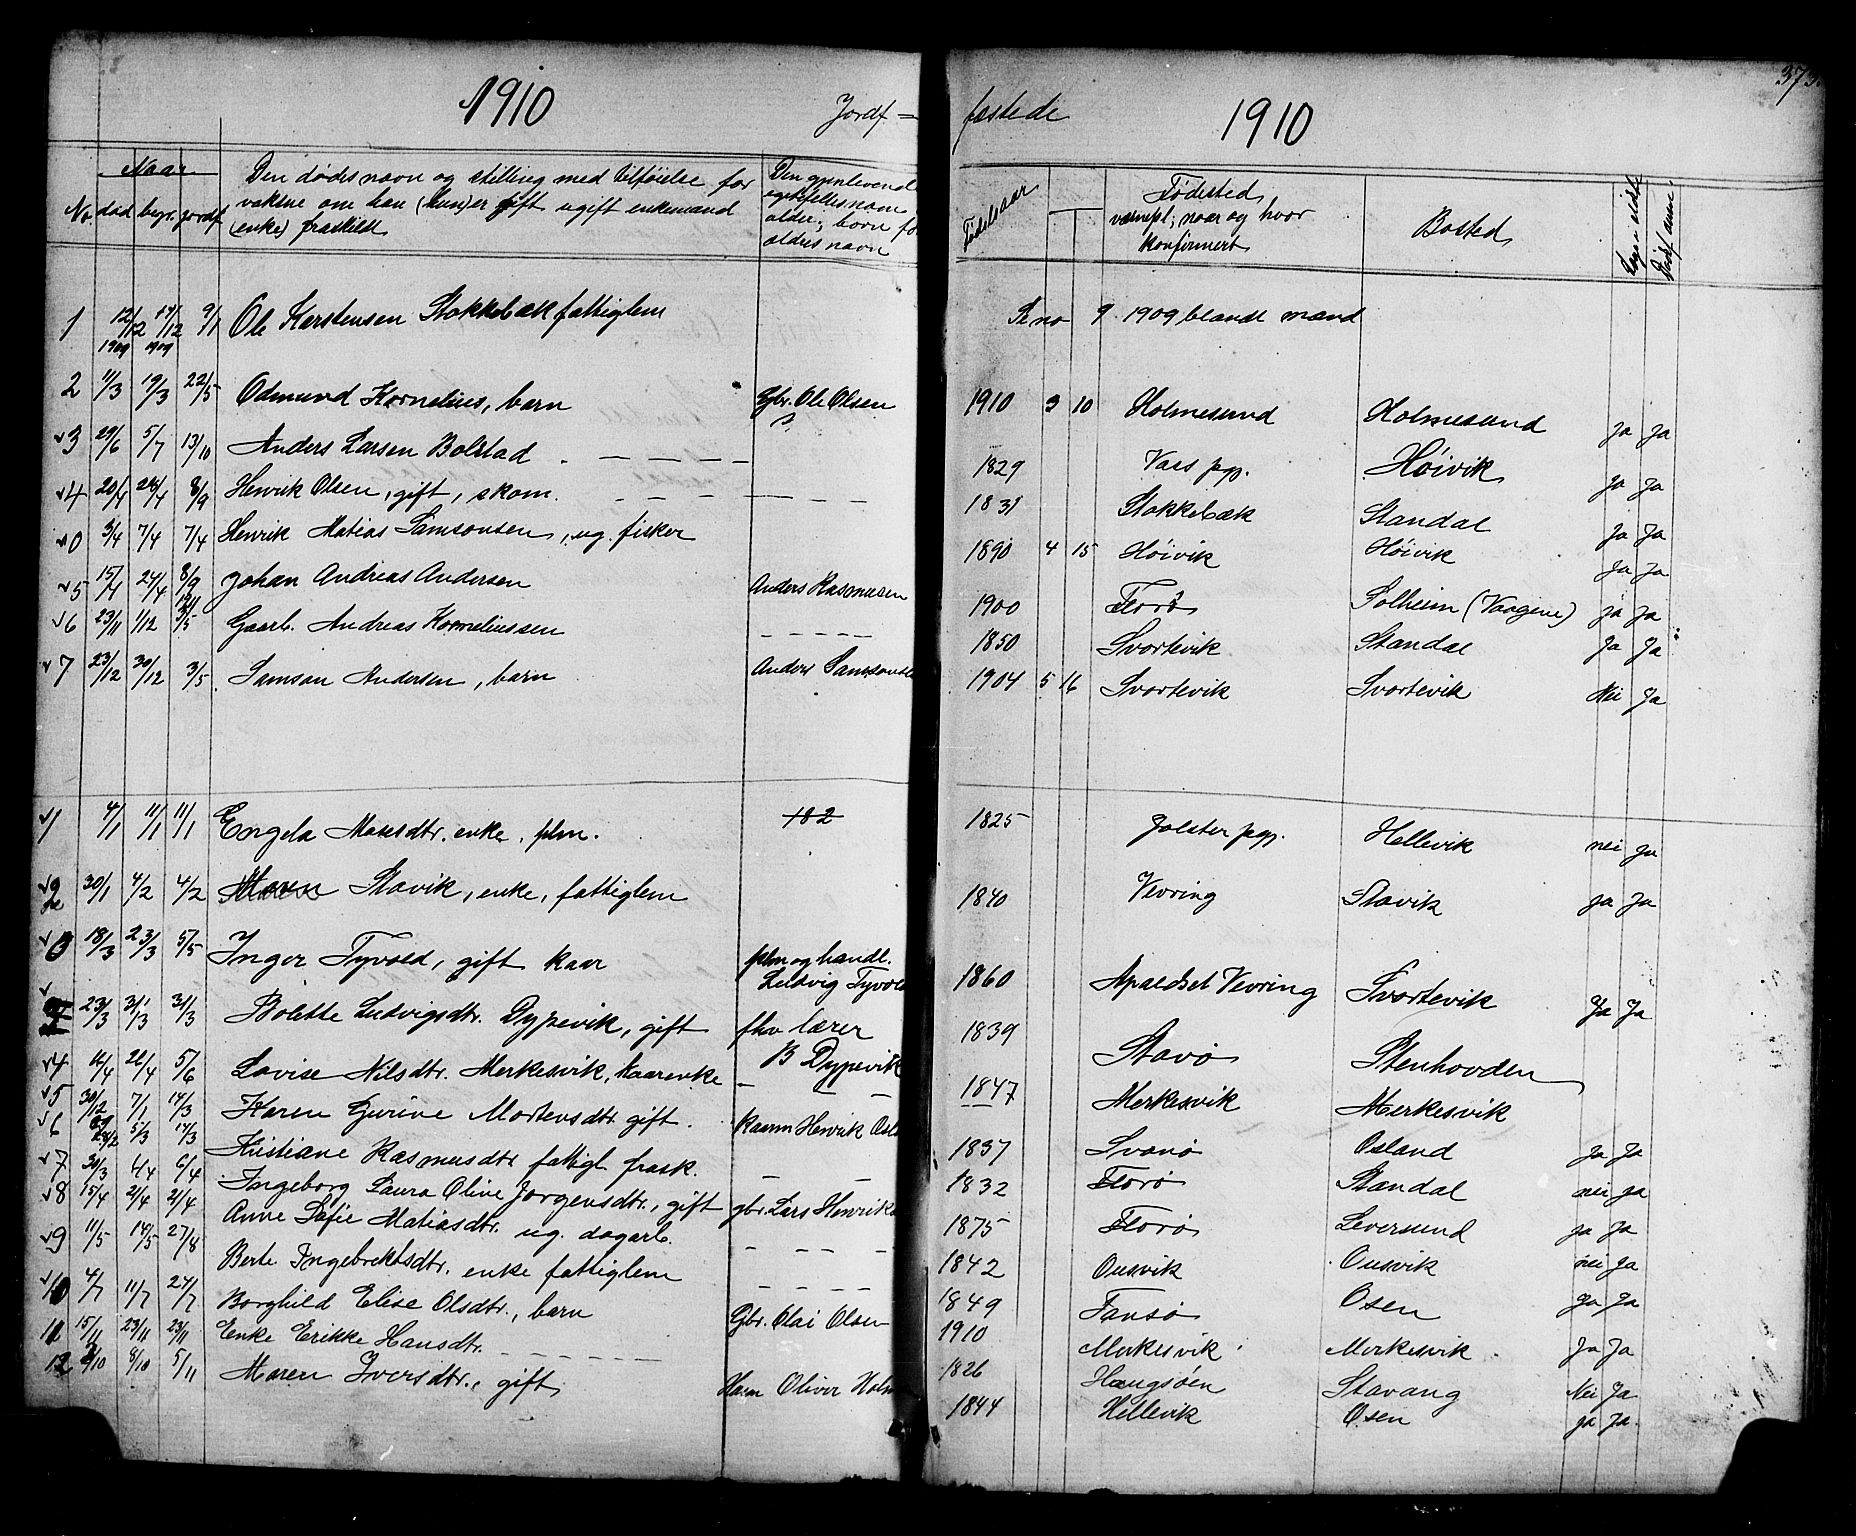 1910
Jordf-
Naar
No. død begr. jordf
Den dødes navn og stilling med tilføielse for
voksne om han (hun) er gift ugift enkemand
(enke) fraskilt
Den gjenlevend
egtefelles navn
alder; barn fo
ældres navn
1 12/12 1909 17/12 1909 9/1 Ole Karstensen Stokkebæk fattiglem
2 11/3 19/3 22/5 Odmund Kornelius, barn Gbr. Ole Olsen
v3 29/6 5/7 13/10 Anders Larsen Bolstad - - - -
v4 20/4 28/4 8/9 Henrik Olsen, gift, skom. - - - - -
v0 3/4 7/4 7/4 Henrik Matias Samsonsen, ug. fisker
v5 15/4 24/4 8/9 Johan Andreas Andersen Anders Rasmusen
v6 23/11 1/12 3/5 Gaarb. Andreas Korneliussen - - - - -
v7 23/12 30/12 3/5 Samson Andersen, barn Anders Samsonse
v1 4/1 11/1 11/1 Engela Mosesdtr. enke, plm. 182
v2 30/1 4/2 4/2 Maren Stavik, enke, fattiglem
v3 18/3 23/3 5/5 Inger Tyvold, gift kaar plm og handl.
Ludvig Tyvold
23/3 31/3 31/3 Bolette Ludvigsdtr. Dypevik, gift fhv lærer
B Dypevik
v4 16/4 22/4 5/6 Lovise Nilsdtr. Merkesvik, kaarenke - -
v5 30/12 09 7/1 14/3 Karen Gurine Mortensdtr gift. kaarm Henrik Ols
v6 24/2 5/3 17/3 Kristiane Rasmusdtr fattigl frask.
v7 30/3 6/4 6/4 Ingeborg Laura Olive Jørgensdtr., gift gbr. Lars Henriks
v8 15/4 21/4 21/4 Anne Sofie Matiasdtr. ug. dagarb. - - - -
v9 11/5 14/5 27/8 Berte Ingebrektsdtr. enke fattiglem - - - -
v10 4/7 11/7 24/7 Borghild Elise Olsdtr., barn Gbr. Olai Olsen
11 15/11 23/11 23/11 Enke Erikke Hansdtr. - - - - - -
12 2/10 8/10 5/11 Maren Iversdtr., gift Hain Oliver Holm
373.
fæstede
1910
Fødselsaar
Fødested,
værnepl; naar og hvor
konfirmert
Bosted
Se no 9 1909 blandt mænd
1910 3 10 Holmesund Holmesund ja ja
1829 Vaas pgj. Høivik ja ja
1831 Stokkebæk Standal ja ja
1890 4 15 Høivik Høivik ja ja
1900 Florø Solheim (Vaagene) ja ja
1850 Svortevik Standal ja ja
1904 5 16 Svortevik Svortevik Nei Ja
1825 Jolster pgj. Hellevik nei ja
1840 Vevring Stavik ja ja
1860 Apaldset Vevring Svortevik Ja Ja
1839 Stavø Stenhovden
1847 Merkesvik Merkesvik
1837 Svanø Osland ja ja
1832 Florø Standal nei ja
1875 Florø Leversund ja ja
1842 Ousvik Ousvik nei ja
1849 Fansø Osen ja ja
1910 Merkesvik Merkesvik Ja Ja
1826 Haugsøen Stavang Nei Ja
1844 Hellevik Osen ja ja.